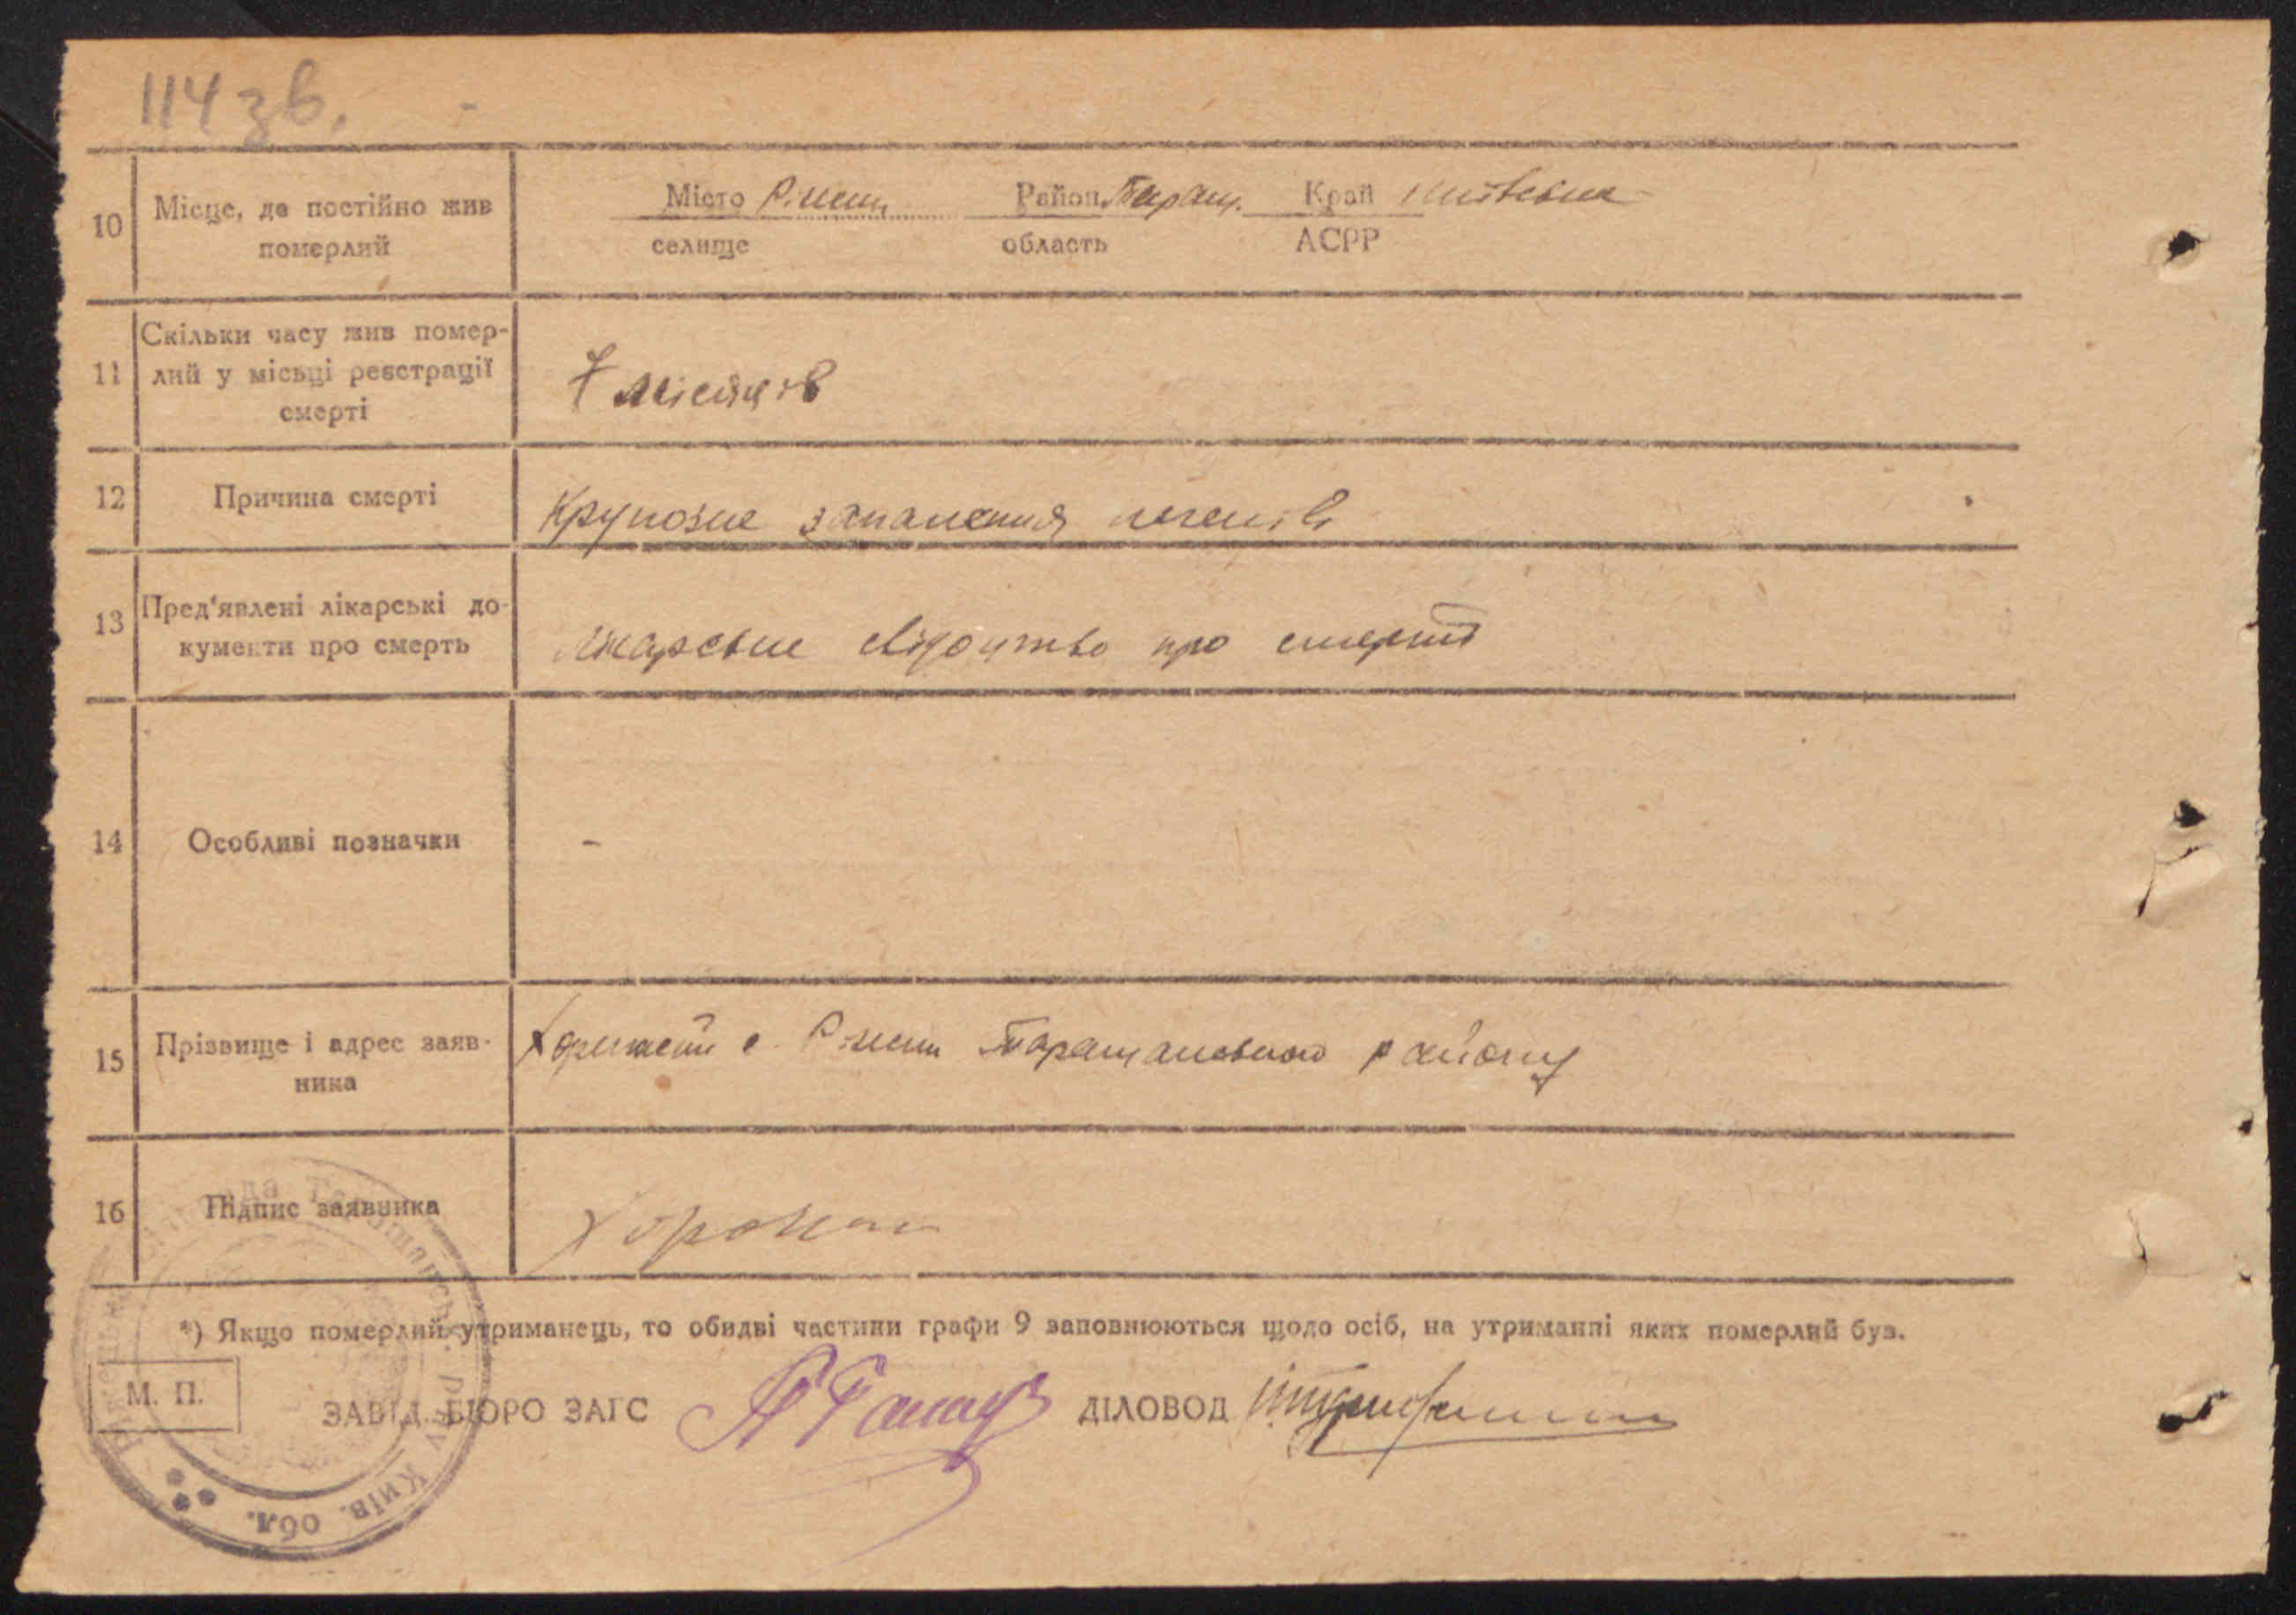 114 зв.
10
Місце, де постійно жив
померлий
Місто Ріжки Район Таращ. Край Київська
селище область АСРР
11
Скільки часу жив помер-
лий у місьці реєстрації
смерті
7 місяців
12
Причина смерті
Крупозне запалення легенів
13
Пред'явлені лікарські до-
кументи про смерть
лікарське свідоцтво про смерть
14
Особливі позначки
-
15
Прізвище і адрес заяв-
ника
с. Ріжки Таращанського району
16
Підпис заявника
*) Якщо померлий утриманець, то обидві частини графи 9 заповнюються щодо осіб, на утриманні яких померлий був.
М. П.
ЗАВІД. БЮРО ЗАГС ДІЛОВОД
рну Київ. обл.